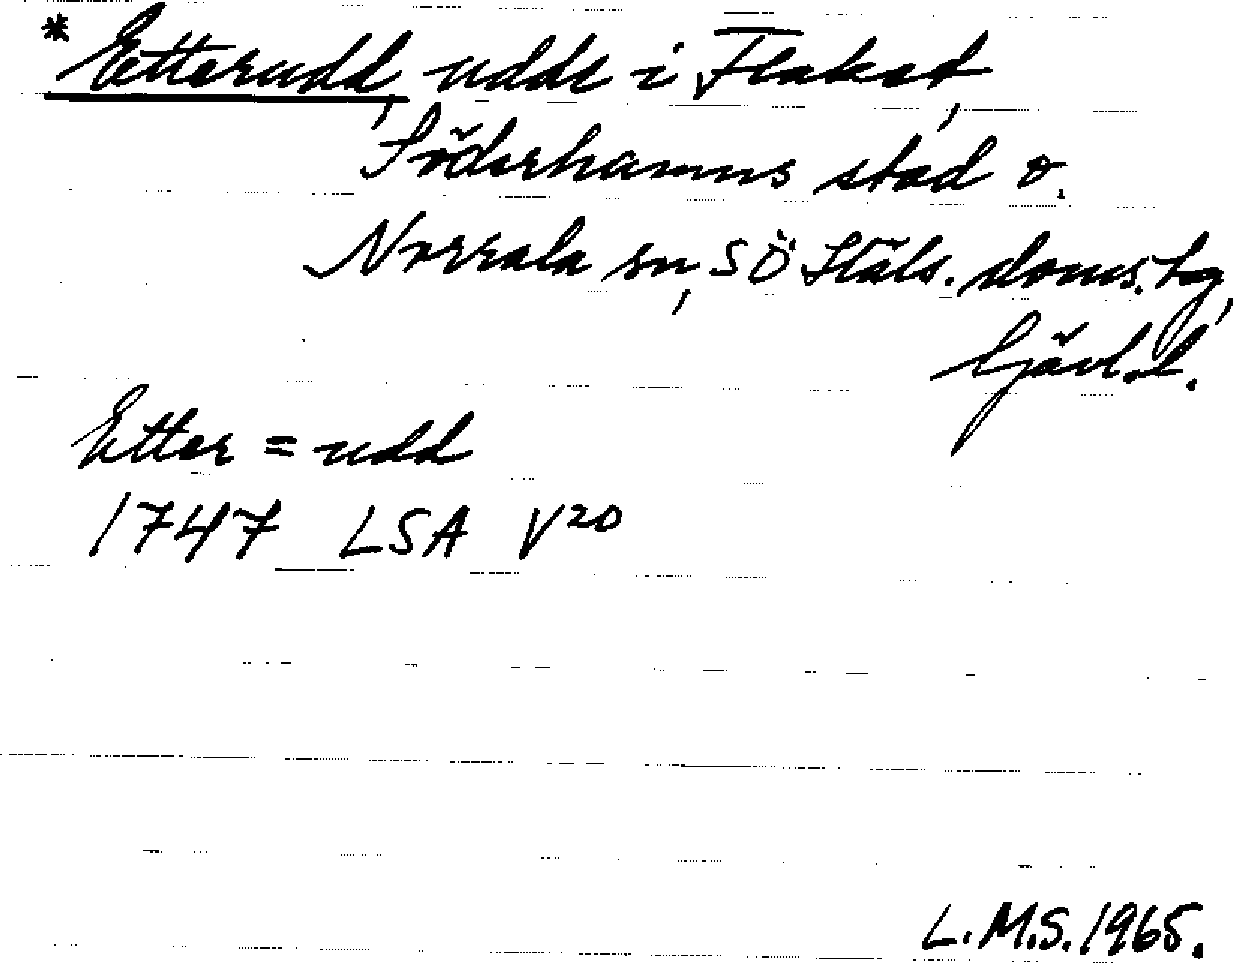 * Etterudd, udde i Flaket,
Söderhamns stad o.
Norrala sn, SÖ Häls. doms. hg,
Gävl. l.
Etter = udd
1747 LSA V20
L.M.S. 1965.